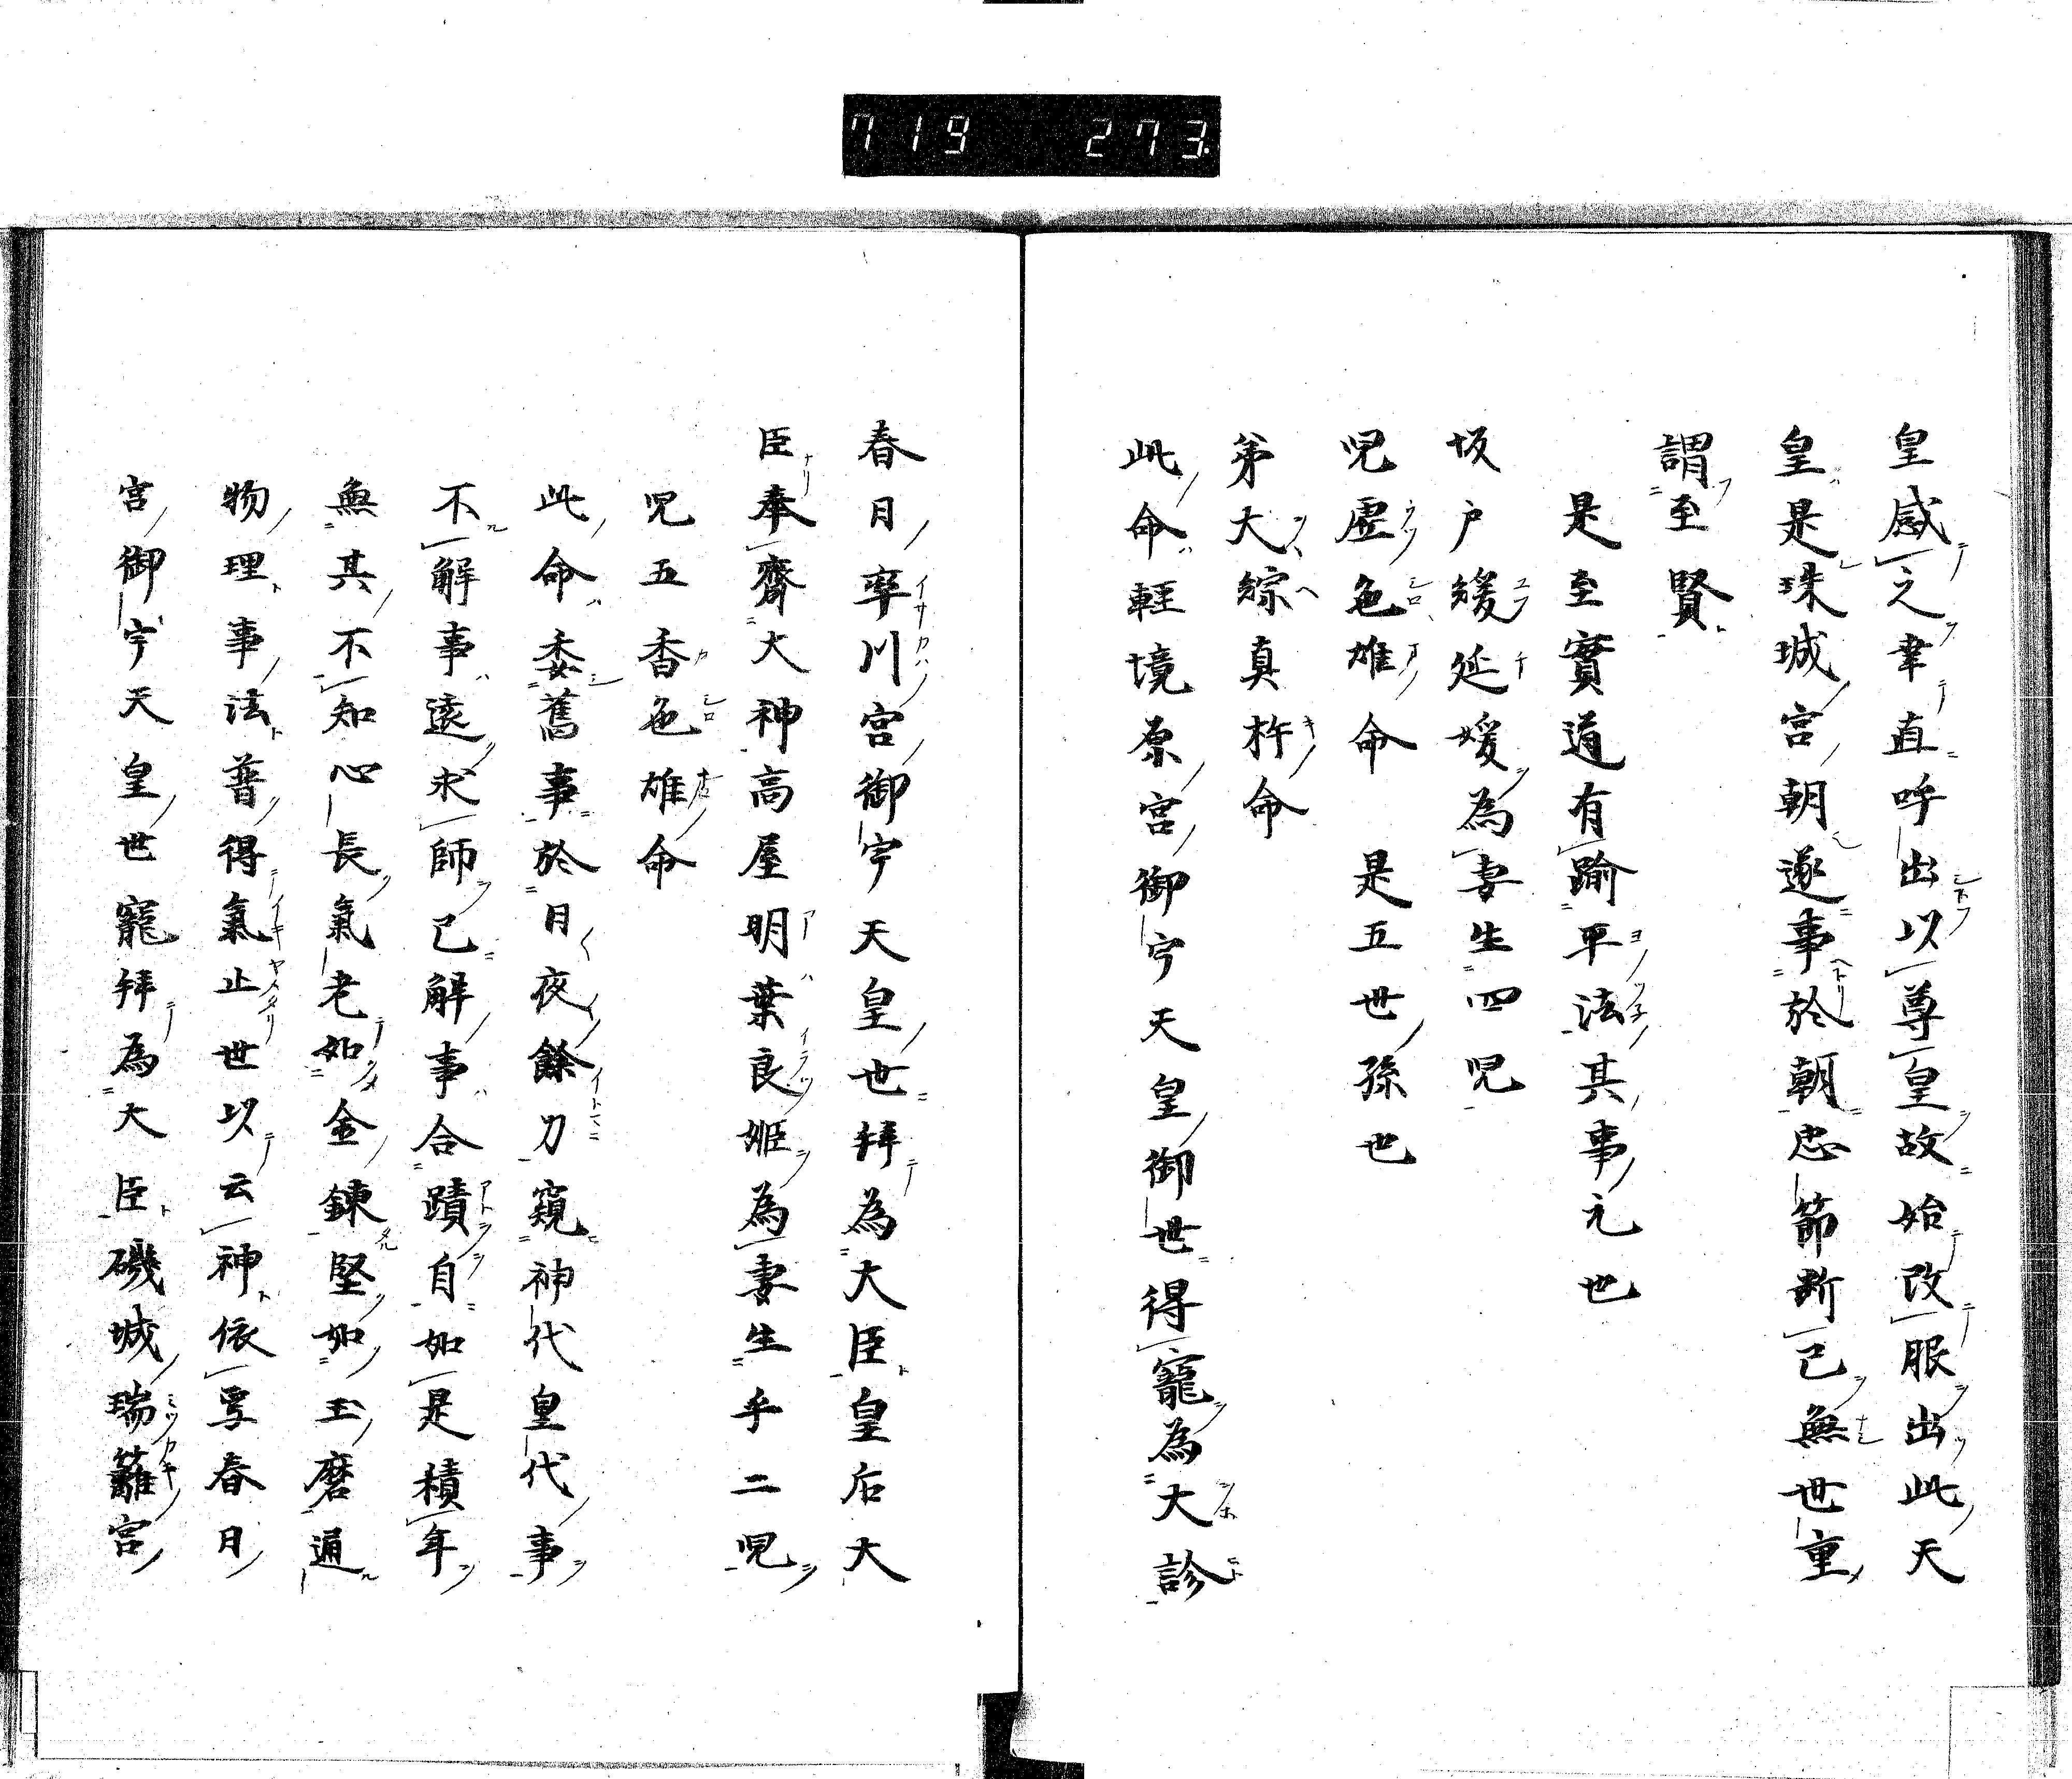 719 273.
皇感之聿直呼出以尊皇故始改服出此天
皇是珠城宮朝遂事於朝忠節断己無世重
謂至賢
是至實道有踰平法其事元也
坂戸緩延媛為妻生四児
児虚色雄命 是五世孫也
弟大綜真杵命
此命輕境原宮御宇天皇御世得寵為大診
春日率川宮御宇天皇世拜為大臣皇后大
臣奉齋大神高屋明葉良姫為妻生乎二児
児五香色雄命
此命委舊事於日夜餘力窺神代皇代事
不解事遠求師已解事合蹟自如是積年
無其不知心長氣老如金錬堅如玉磨通
物理事法普得氣止世以云神依孚春日
宮御宇天皇世寵拜為大臣磯城瑞籬宮